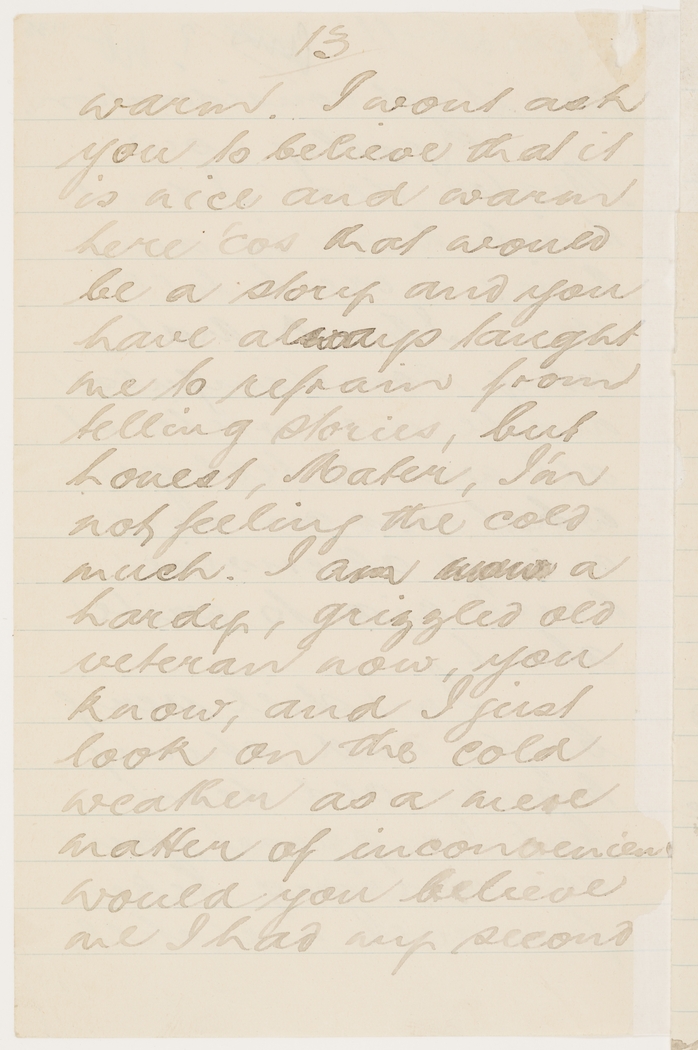 13
warm. I wont ask
you to believe that it
is nice and warm
here 'cos that would
be a story and you
have always taught
me to refrain from
telling stories, but
honest, Mater, I'm
not feeling the cold
much. I am a
hardy, grizzled old
veteran now, you
know, and I just
look on the cold
weather as a mere
matter of inconvenien
would you believe
me I had my second